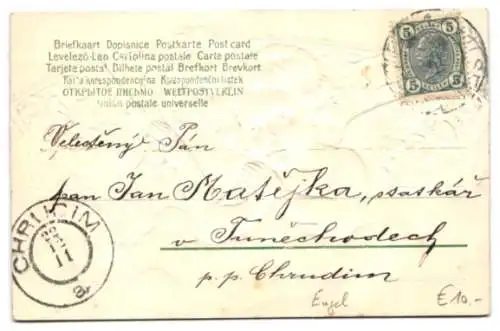 Briefkaart Dopisnice Postkarte Post card
Levelező-Lap Cartolina postale Carte postale
Tarjeta postal Bilhete postal Brefkort Brevkort
Karta korespondencyjna Korespondenční lístek
ОТКРЫТОЕ ПИСЬМО WELTPOSTVEREIN
Union postale universelle
5 5
5 5
Veletěný Pán
pan Jan Matějka,
v Tuněchodech
p. p. Chrudim
CHRUDIM
11
a
Engel
£10.-